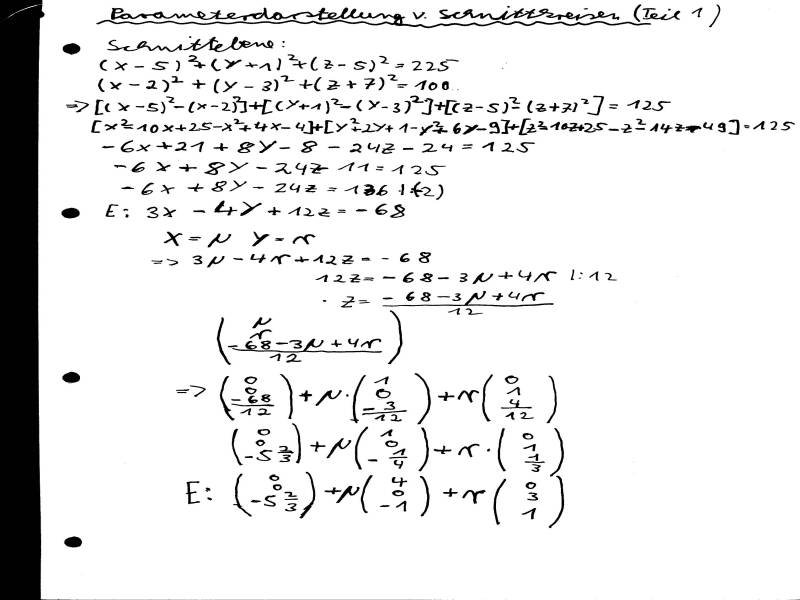 Parameterdarstellung v. Schnittkreisen (Teil 1)
Schnittebene:
(x-5)²+(y+1)²+(z-5)²=225
(x-2)²+(y-3)²+(z+7)²=100
=> [(x-5)²-(x-2)²]+[(y+1)²-(y-3)²]+[(z-5)²-(z+7)²]=125
[x²-10x+25-x²+4x-4]+[y²+2y+1-y²+6y-9]+[z²-10z+25-z²-14z-49]=125
-6x+21+8y-8-24z-24=125
-6x+8y-24z-11=125
-6x+8y-24z=136 |:(-2)
E: 3x-4y+12z=-68
x=μ y=r
=> 3μ-4r+12z=-68
12z=-68-3μ+4r |:12
z=(-68-3μ+4r)/12
(μ, r, (-68-3μ+4r)/12)
=> (0, 0, -68/12)+μ·(1, 0, -3/12)+r(0, 1, 4/12)
(0, 0, -5 2/3)+μ(1, 0, -1/4)+r·(0, 1, 1/3)
E: (0, 0, -5 2/3)+μ(4, 0, -1)+r(0, 3, 1)